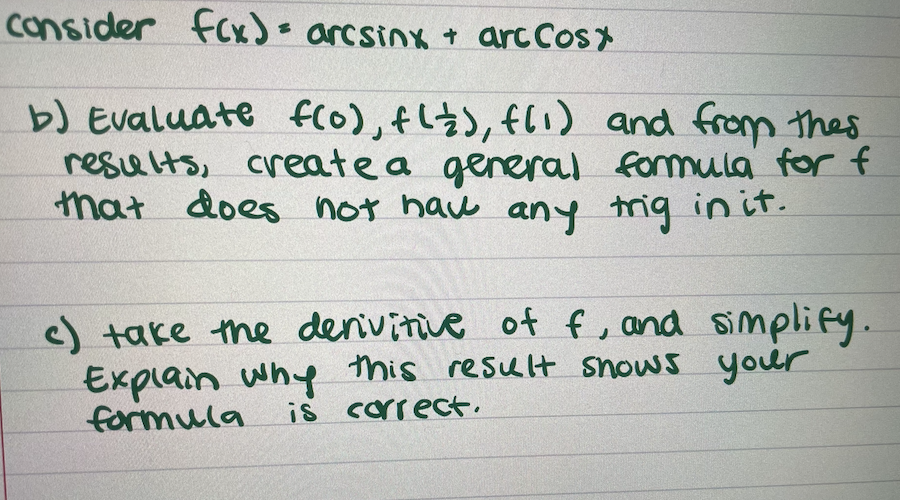 consider f(x) = arcsinx + arcCosx
b) Evaluate f(0), f(½), f(1) and from thes
results, create a general formula for f
that does not have any trig in it.
c) take the derivitive of f, and simplify.
Explain why this result shows your
formula is correct.